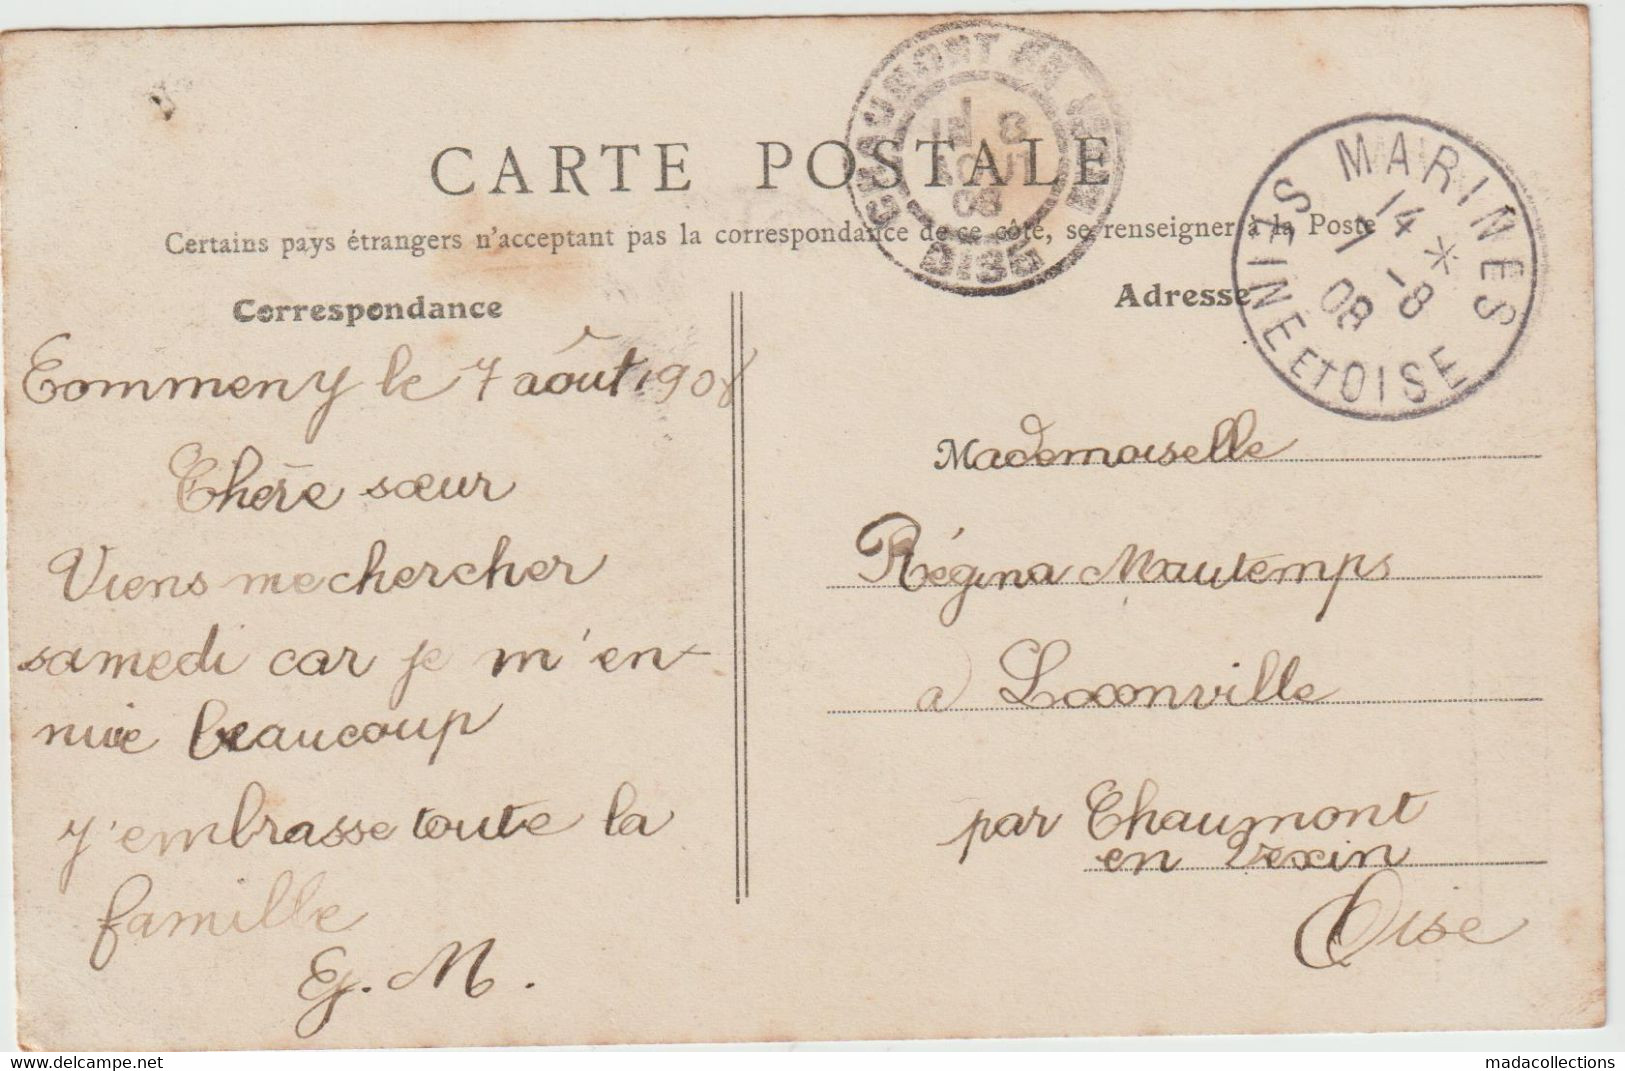 CARTE POSTALE
Certains pays étrangers n'acceptant pas la correspondance de ce côté, se renseigner à la Poste
CHAUMONT EN VEXIN
8
AOUT
08
OISE
MARINES
14
7 -8
08
SEINE ET OISE
Correspondance
Commeny le 7 août 1908
Chère sœur
Viens me chercher
samedi car je m'en-
nuie beaucoup
j'embrasse toute la
famille
G. M.
Adresse
Mademoiselle
Régina Mautemps
a Loconville
par Chaumont
en Vexin
Oise
madacollections.com
madacollections